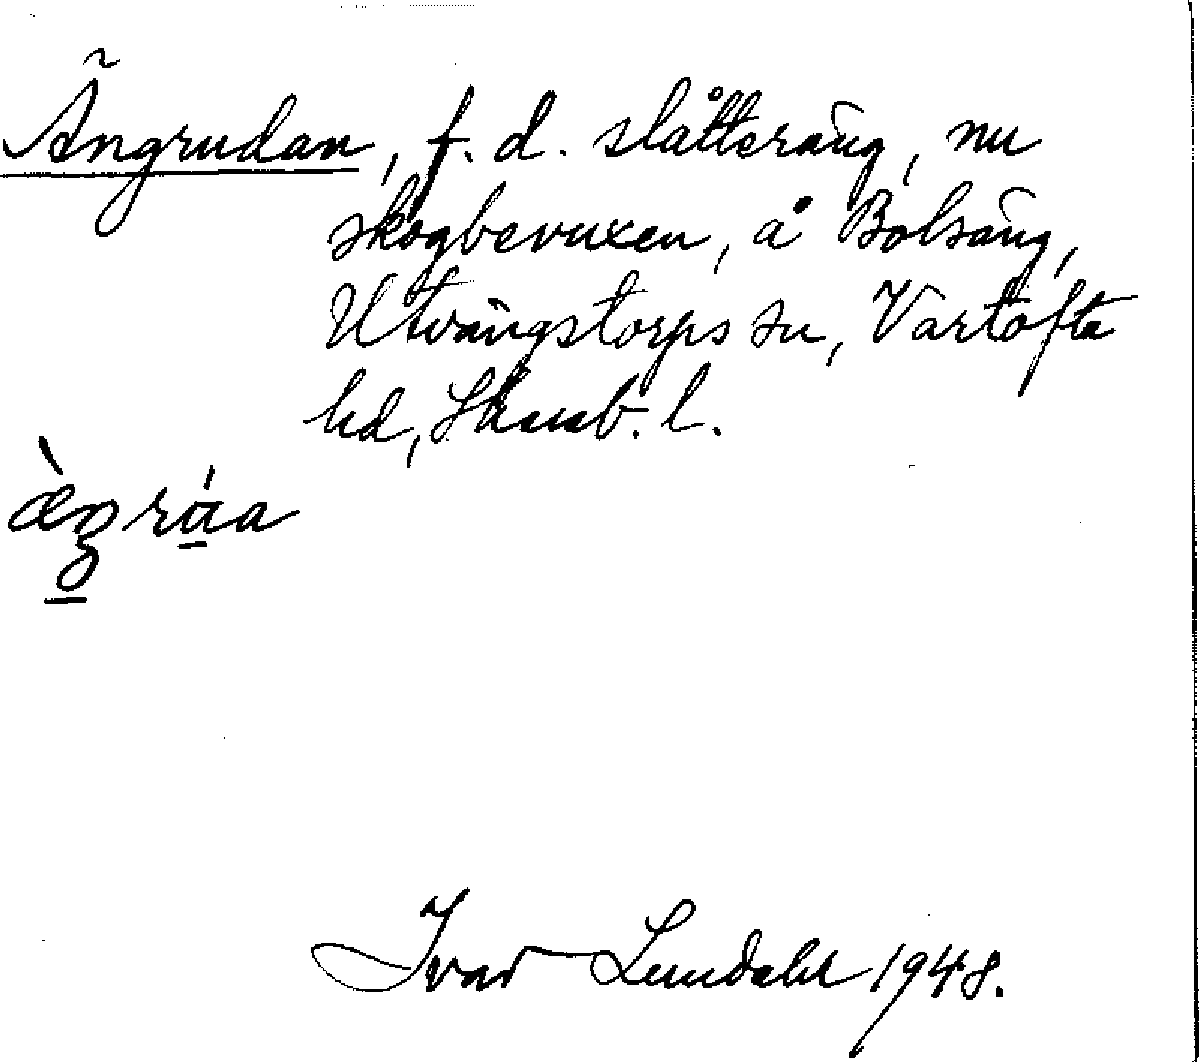 Ängrudan, f. d. slåtteräng, nu
skogbevuxen, å Bolsäng,
Utvängstorps sn, Vartofta
hd, Skarab. l.
Ivar Lundahl 1948.